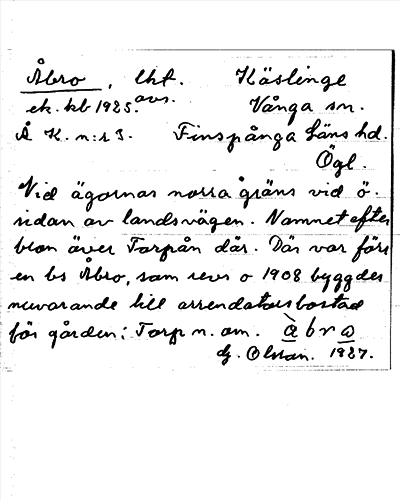 Åbro, lht. Käslinge
ek. kb 1925. avs. Vånga sn.
Å K. n:r 3. Finspånga läns hd.
Ögl.
Vid ägornas norra gräns vid ö.
sidan av landsvägen. Namnet efter
bron över Torpån där. Där var förr
en bs Åbro, som revs o 1908 byggdes
nuvarande lill arrendatorsbostad
för gården: Torp n. om. åbro
G. Olsson. 1927.